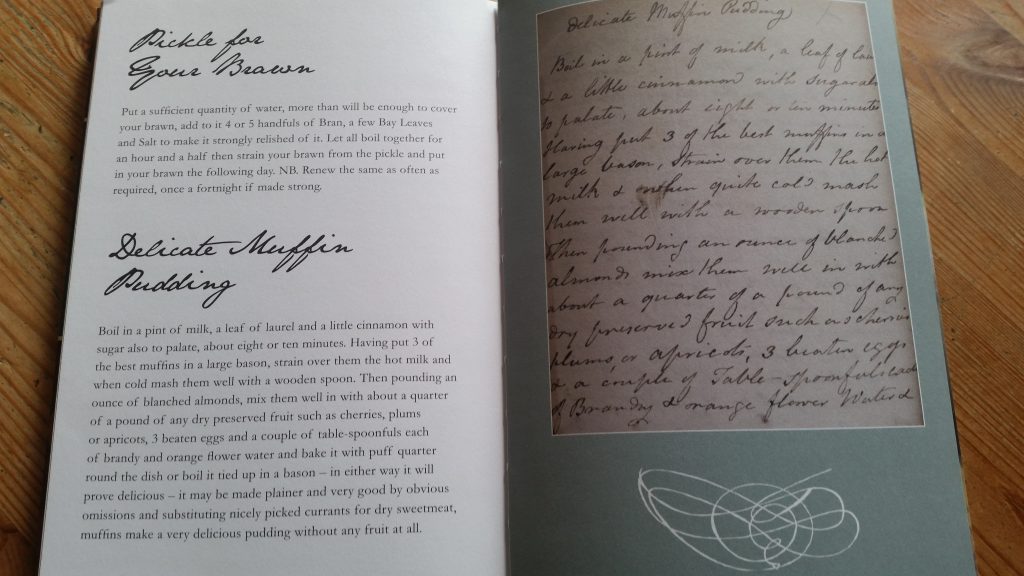 Pickle for
Your Brawn
Put a sufficient quantity of water, more than will be enough to cover
your brawn, add to it 4 or 5 handfuls of Bran, a few Bay Leaves
and Salt to make it strongly relished of it. Let all boil together for
an hour and a half then strain your brawn from the pickle and put
in your brawn the following day. NB. Renew the same as often as
required, once a fortnight if made strong.
Delicate Muffin
Pudding
Boil in a pint of milk, a leaf of laurel and a little cinnamon with
sugar also to palate, about eight or ten minutes. Having put 3 of
the best muffins in a large bason, strain over them the hot milk and
when cold mash them well with a wooden spoon. Then pounding an
ounce of blanched almonds, mix them well in with about a quarter
of a pound of any dry preserved fruit such as cherries, plums
or apricots, 3 beaten eggs and a couple of table-spoonfuls each
of brandy and orange flower water and bake it with puff quarter
round the dish or boil it tied up in a bason – in either way it will
prove delicious – it may be made plainer and very good by obvious
omissions and substituting nicely picked currants for dry sweetmeat,
muffins make a very delicious pudding without any fruit at all.
Delicate Muffin Pudding
Boil in a pint of milk, a leaf of
& a little cinnamon with sugar
to palate, about eight or ten minutes
Having put 3 of the best muffins in a
large bason, strain over them the hot
milk & when quite cold mash
them well with a wooden spoon
Then pounding an ounce of blanched
almonds mix them well in with
about a quarter of a pound of any
dry preserved fruit such as cherries
plums, or apricots, 3 beaten eggs
& a couple of Table-spoonfuls each
of Brandy & orange flower Water &